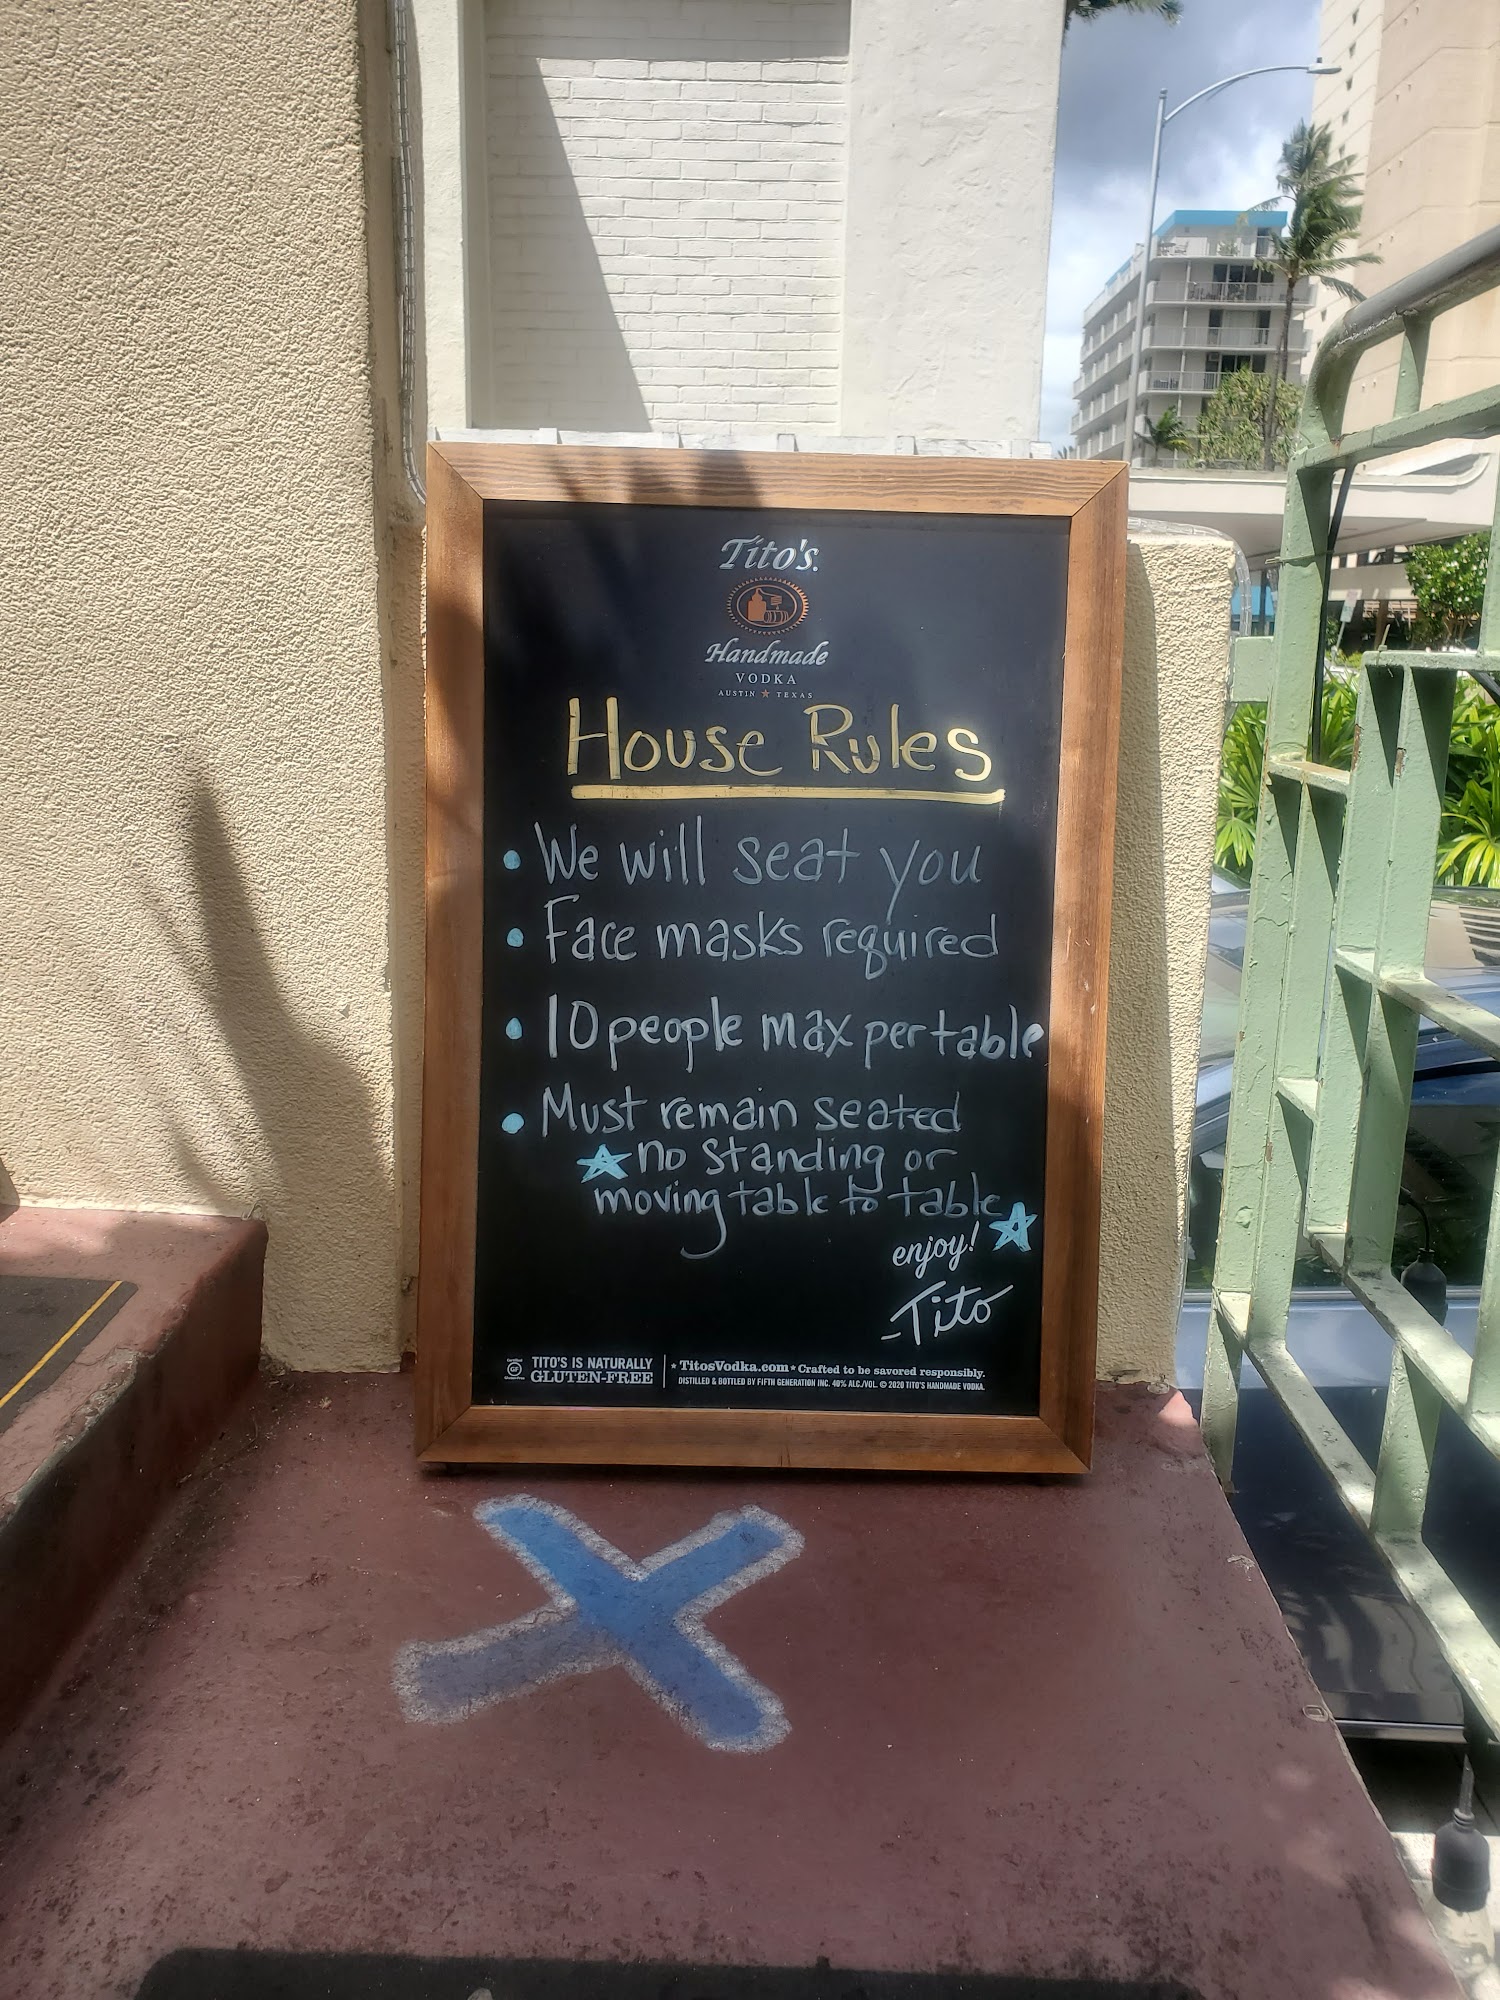 Tito's.
Handmade
VODKA
AUSTIN ★ TEXAS
House Rules
• We will seat you
• Face masks required
• 10 people max per table
• Must remain seated
★ no standing or
moving table to table ★
enjoy!
-Tito
Certified GF Gluten-Free
TITO'S IS NATURALLY
GLUTEN-FREE
★ TitosVodka.com ★ Crafted to be savored responsibly.
DISTILLED & BOTTLED BY FIFTH GENERATION INC. 40% ALC./VOL. © 2020 TITO'S HANDMADE VODKA.